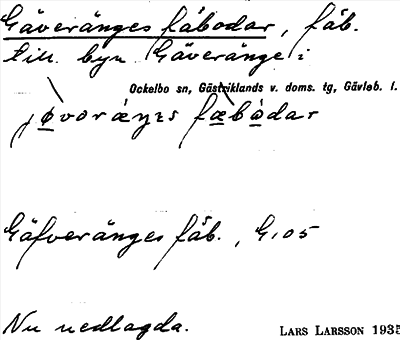 Gäveränges fäbodar, fäb.
till byn Gäveränge i
Ockelbo sn, Gästriklands v. doms. tg, Gävleb. l.
Gäfveränges fäb., G. 05
Nu nedlagda.
LARS LARSSON 1935